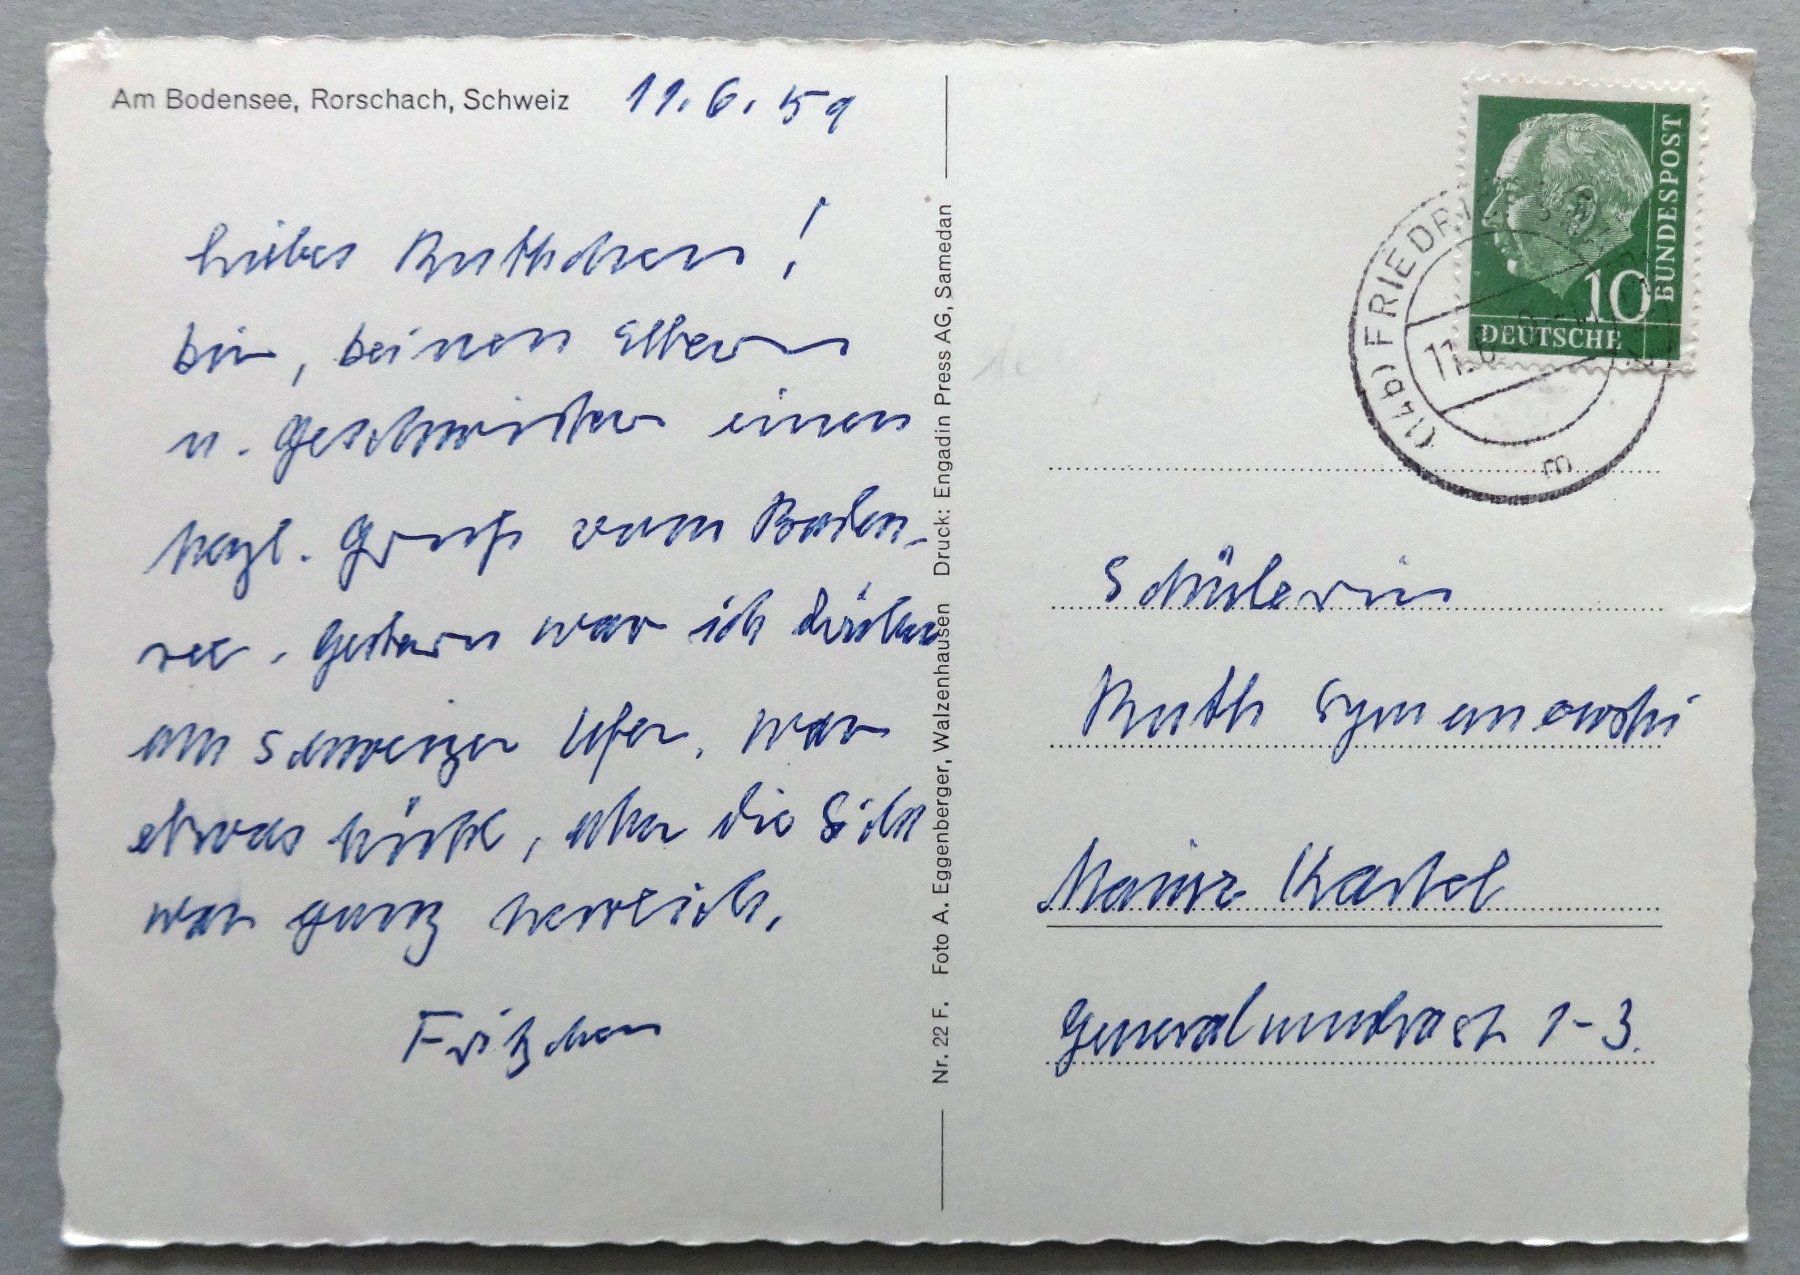 Am Bodensee, Rorschach, Schweiz
11.6.59
Liebes Ruthchen!
Dir, Deinen Eltern
u. Geschwister einen
herzl. Gruß vom Boden-
see. Gestern war ich drüben
am Schweizer Ufer, war
etwas kühl, aber die Sicht
war ganz herrlich.
Fritzchen
Nr. 22 F. Foto A. Eggenberger, Walzenhausen Druck: Engadin Press AG, Samedan
10
DEUTSCHE
BUNDESPOST
(14b) FRIEDRICHSHAFEN
m
Schülerin
Ruth Symanowski
Mainz Kastel
Generalmudrastr 1-3.